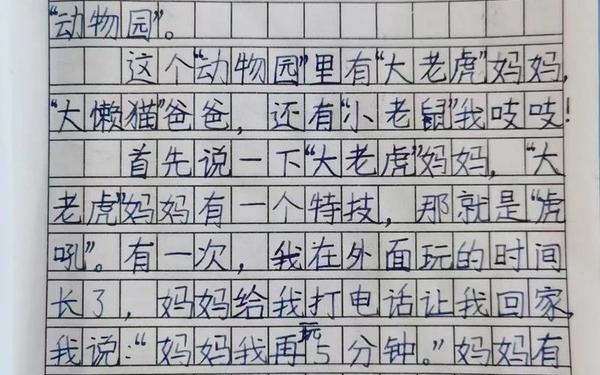 “动物园”。
这个“动物园”里有“大老虎”妈妈，
“大懒猫”爸爸，还有“小老鼠”我吱吱！
首先说一下“大老虎”妈妈，“大
老虎”妈妈有一个特技，那就是“虎
吼”。有一次，我在外面玩的时间
长了，妈妈给我打电话让我回家，
我说：“妈妈我再玩5分钟。”妈妈有